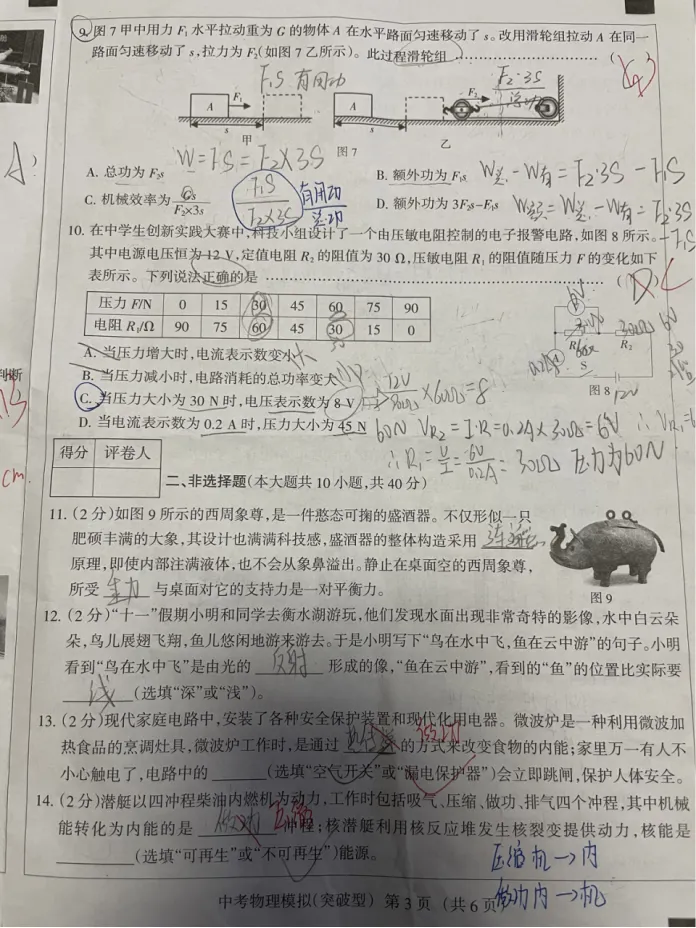 9. 图7甲中用力F₁水平拉动重为G的物体A在水平路面匀速移动了s。改用滑轮组拉动A在同一
路面匀速移动了s,拉力为F₂(如图7乙所示)。此过程滑轮组 ……………… ( )
F₁S 有用功
F₂·3S
总功
A F₁ s 甲
图7
A F₂ s 乙
W=FS=F₂×3S
A. 总功为F₂s
B. 额外功为F₁s
W总-W有=F₂·3S-F₁S
C. 机械效率为Gs/F₂×3s
F₁S/F₂×3S 有用功/总功
D. 额外功为3F₂s-F₁s
W额=W总-W有=F₂·3S-F₁S
10. 在中学生创新实践大赛中,科技小组设计了一个由压敏电阻控制的电子报警电路,如图8所示。
其中电源电压恒为12 V,定值电阻R₂的阻值为30 Ω,压敏电阻R₁的阻值随压力F的变化如下
表所示。下列说法正确的是 ……………… ( )
压力F/N 0 15 30 45 60 75 90
电阻R₁/Ω 90 75 60 45 30 15 0
A. 当压力增大时,电流表示数变小
B. 当压力减小时,电路消耗的总功率变大
C. 当压力大小为30 N时,电压表示数为8 V
D. 当电流表示数为0.2 A时,压力大小为45 N
R₂
S
图8
12V
60N VR₂=I·R=0.2A×30Ω=6V
∴R₁=U/I=6V/0.2A=30Ω 压力为60N
得分 评卷人
二、非选择题(本大题共10小题,共40分)
11. (2分)如图9所示的西周象尊,是一件憨态可掬的盛酒器。不仅形似一只
肥硕丰满的大象,其设计也满满科技感,盛酒器的整体构造采用 连通器
原理,即使内部注满液体,也不会从象鼻溢出。静止在桌面空的西周象尊,
所受 重力 与桌面对它的支持力是一对平衡力。
图9
12. (2分)“十一”假期小明和同学去衡水湖游玩,他们发现水面出现非常奇特的影像,水中白云朵
朵,鸟儿展翅飞翔,鱼儿悠闲地游来游去。于是小明写下“鸟在水中飞,鱼在云中游”的句子。小明
看到“鸟在水中飞”是由光的 反射 形成的像,“鱼在云中游”,看到的“鱼”的位置比实际要
浅 (选填“深”或“浅”)。
13. (2分)现代家庭电路中,安装了各种安全保护装置和现代化用电器。微波炉是一种利用微波加
热食品的烹调灶具,微波炉工作时,是通过 的方式来改变食物的内能;家里万一有人不
小心触电了,电路中的 (选填“空气开关”或“漏电保护器”)会立即跳闸,保护人体安全。
14. (2分)潜艇以四冲程柴油内燃机为动力,工作时包括吸气、压缩、做功、排气四个冲程,其中机械
能转化为内能的是 做功 压缩 冲程;核潜艇利用核反应堆发生核裂变提供动力,核能是
(选填“可再生”或“不可再生”)能源。
压缩 机→内
做功 内→机
中考物理模拟(突破型) 第3页 (共6页)